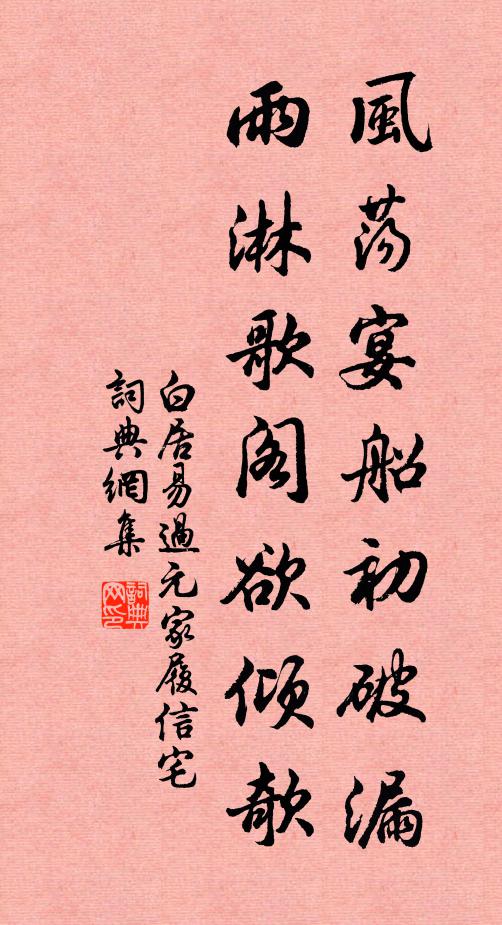 風荡宴船初破漏
雨淋歌阁欲倾欹
白居易過元家履信宅
詞典網集
詞典
网印